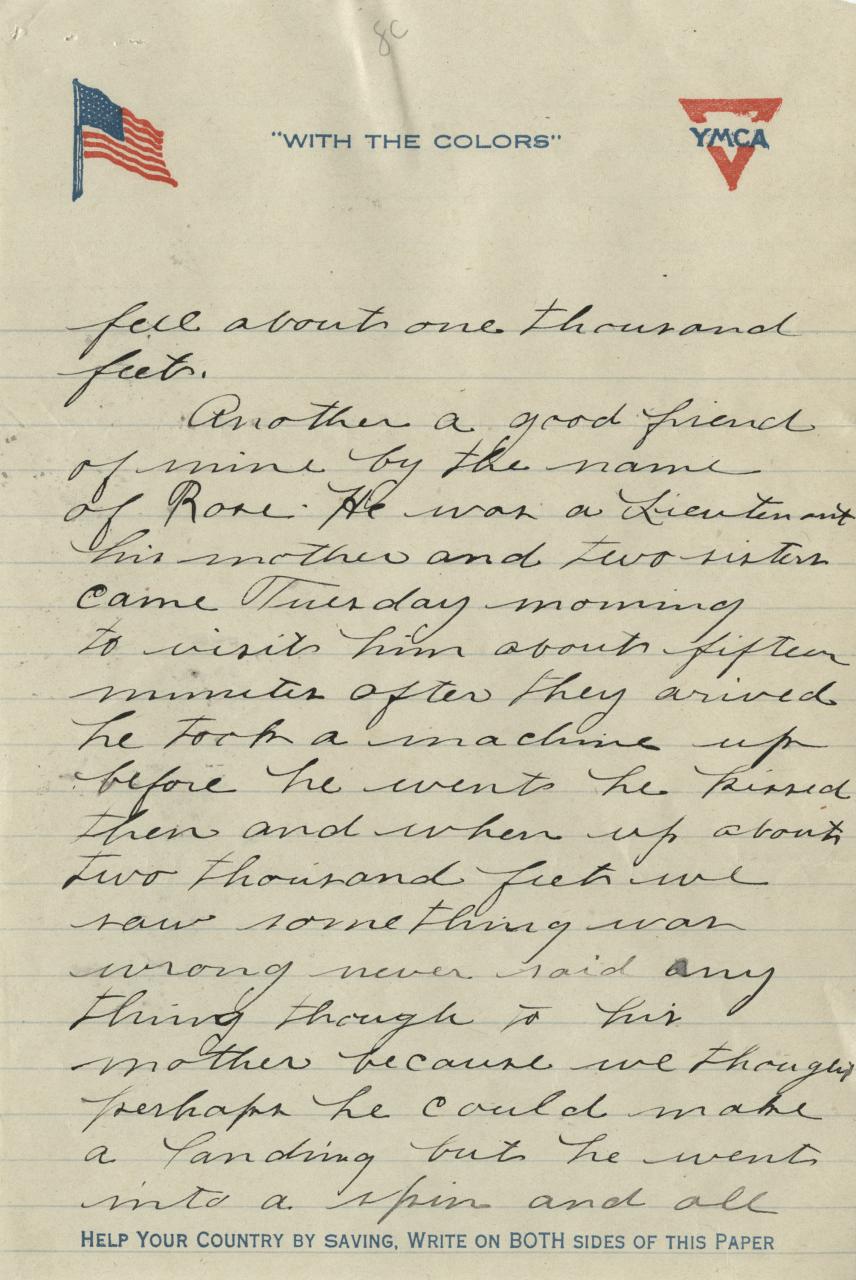 8c
"WITH THE COLORS"
YMCA
fell about one thousand
feet.
Another a good friend
of mine by the name
of Rose. He was a Lieutenant
his mother and two sisters
came Tuesday morning
to visit him about fifteen
minutes after they arived
he took a machine up
before he went he kissed
them and when up about
two thousand feet we
saw something was
wrong never said any
thing though to his
mother because we thought
perhaps he could make
a landing but he went
into a spin and all
HELP YOUR COUNTRY BY SAVING, WRITE ON BOTH SIDES OF THIS PAPER